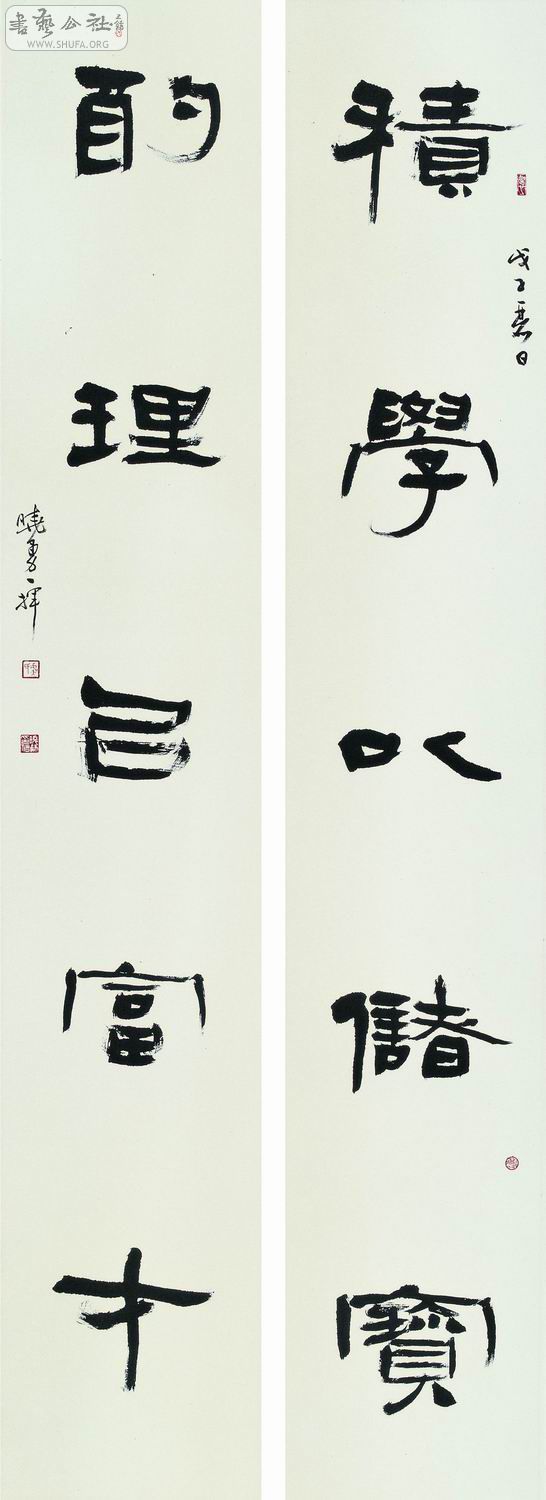 書藝公社
WWW.SHUFA.ORG
積學以儲寶
戊子日
酌理㠯富才
曉勇揮